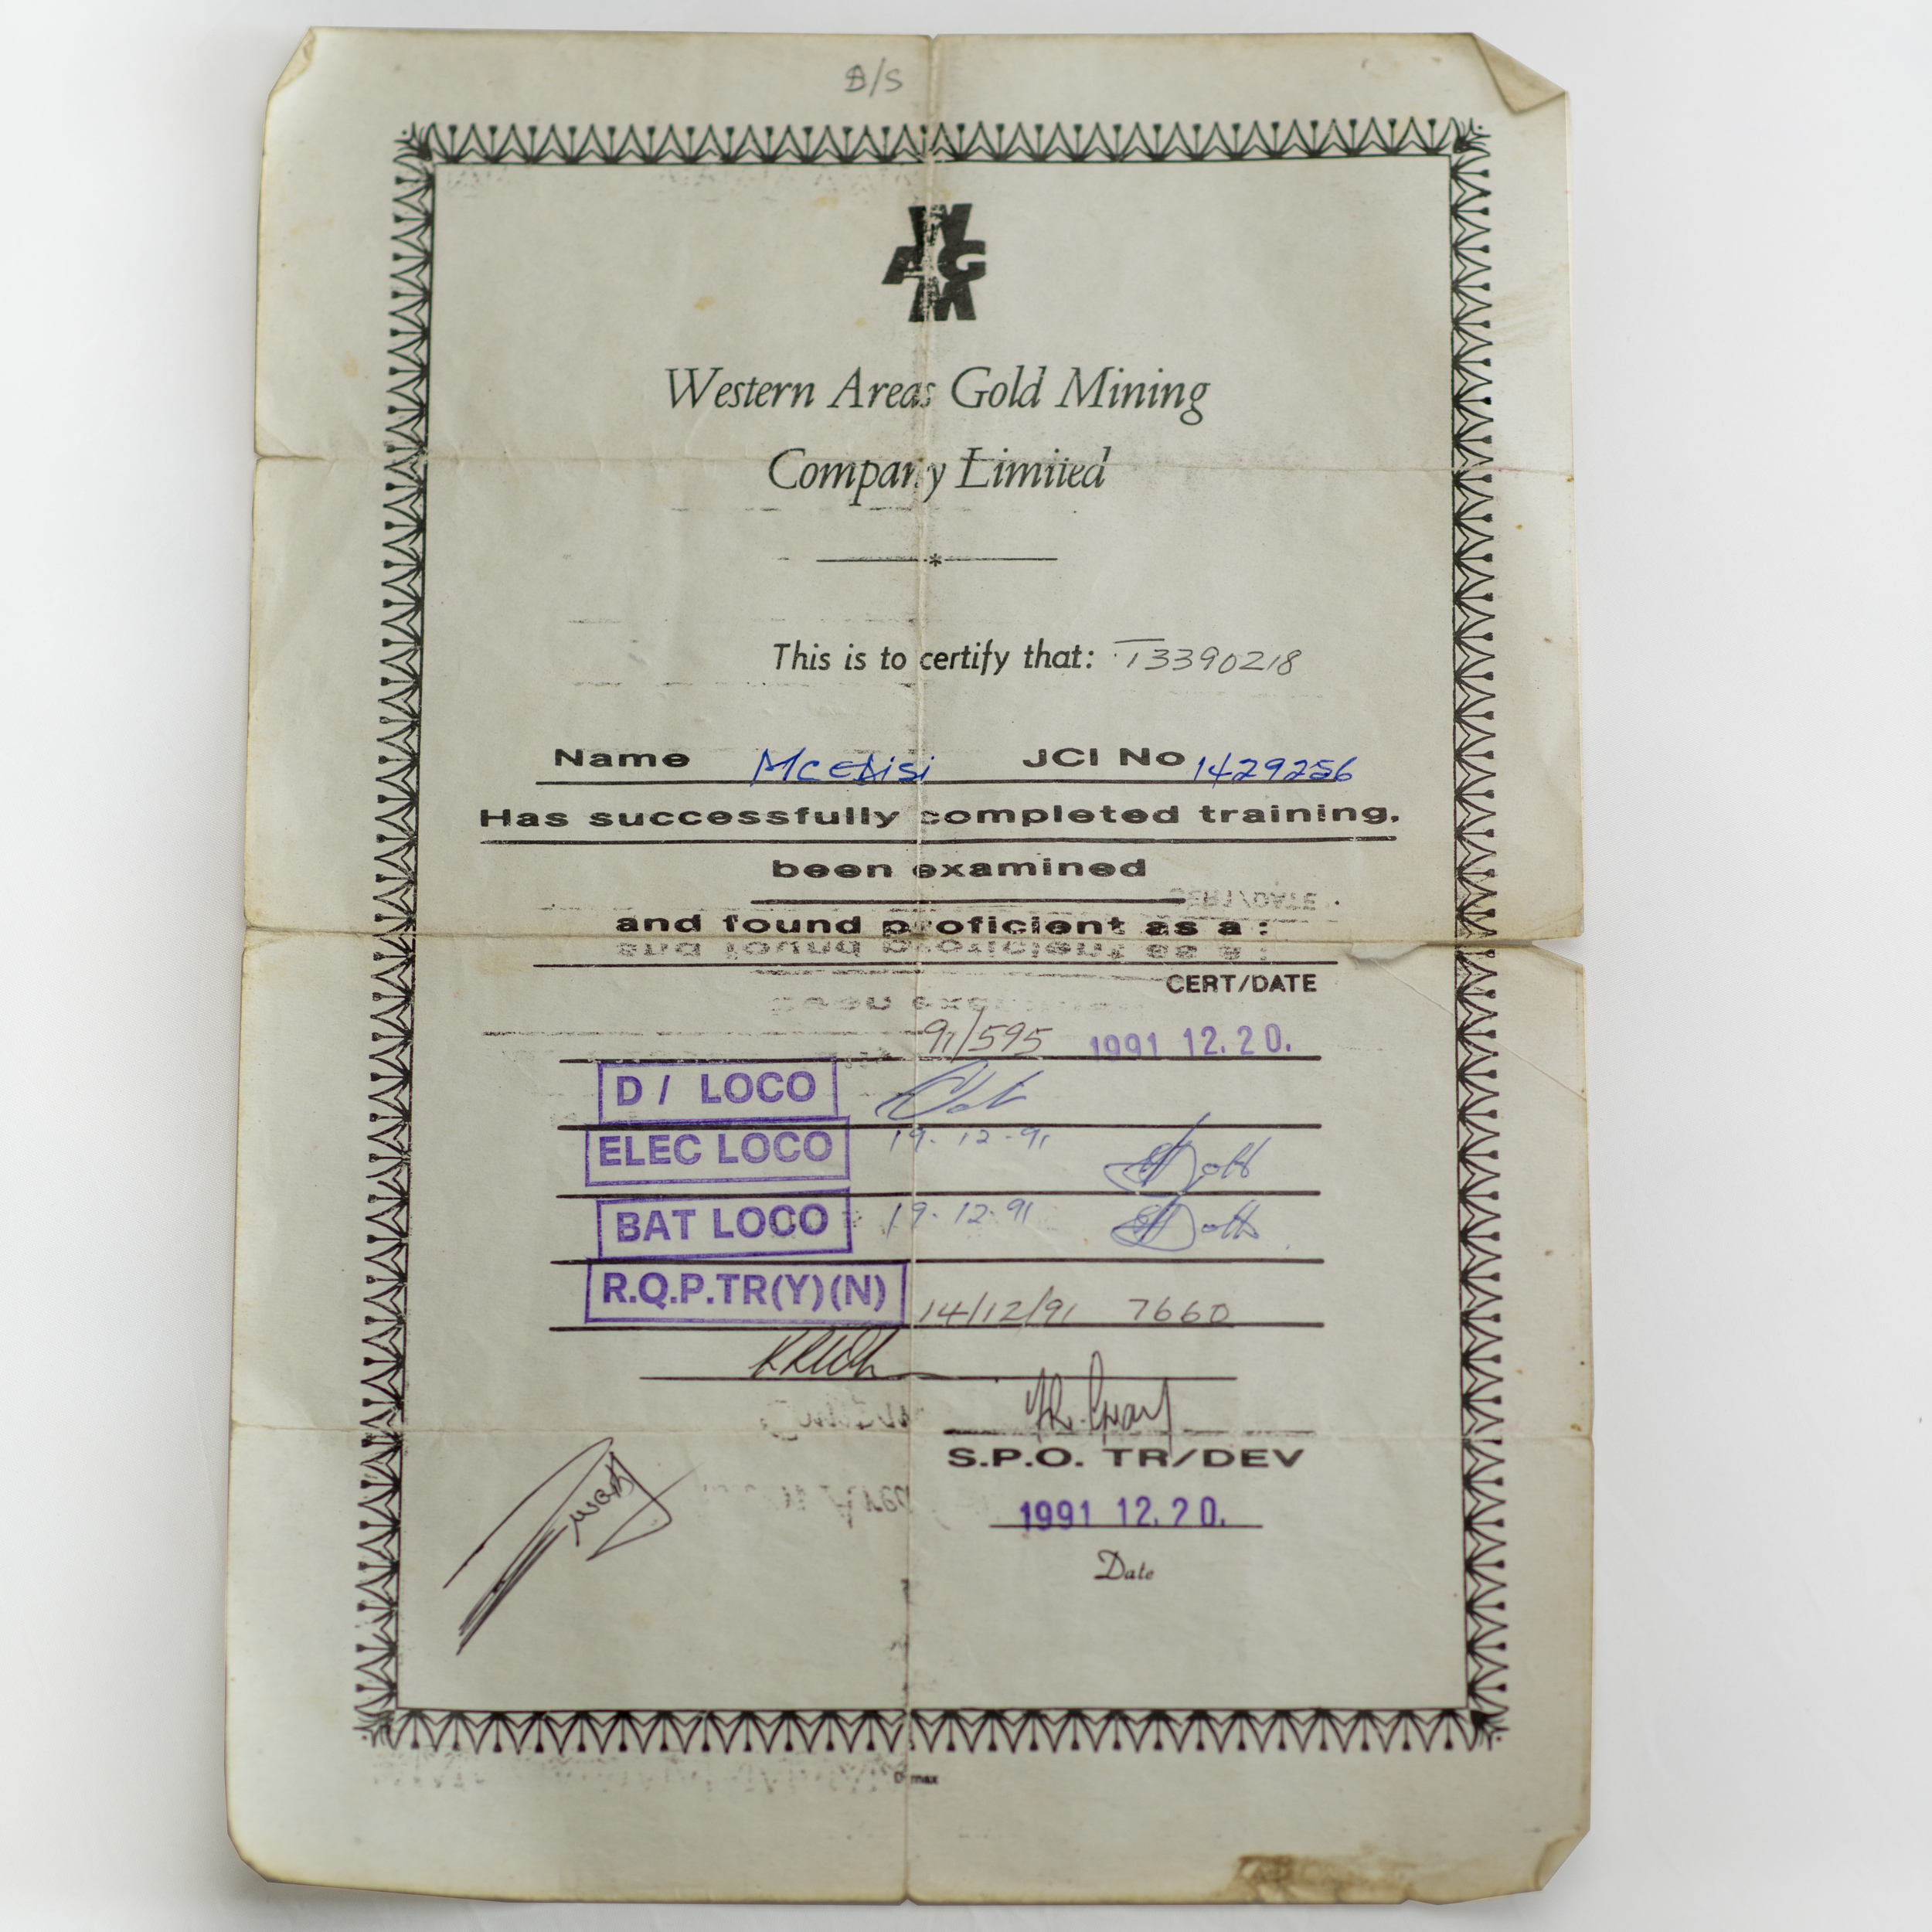 B/S
W
AG
M
Western Areas Gold Mining
Company Limited
This is to certify that: T3390218
Name Mcedisi JCI No 1429256
Has successfully completed training,
been examined
and found proficient as a :
CERT/DATE
91/595 1991 12.20.
D / LOCO
ELEC LOCO 19-12-91
BAT LOCO 19-12-91
R.Q.P.TR(Y)(N) 14/12/91 7660
S.P.O. TR/DEV
1991 12.20.
Date